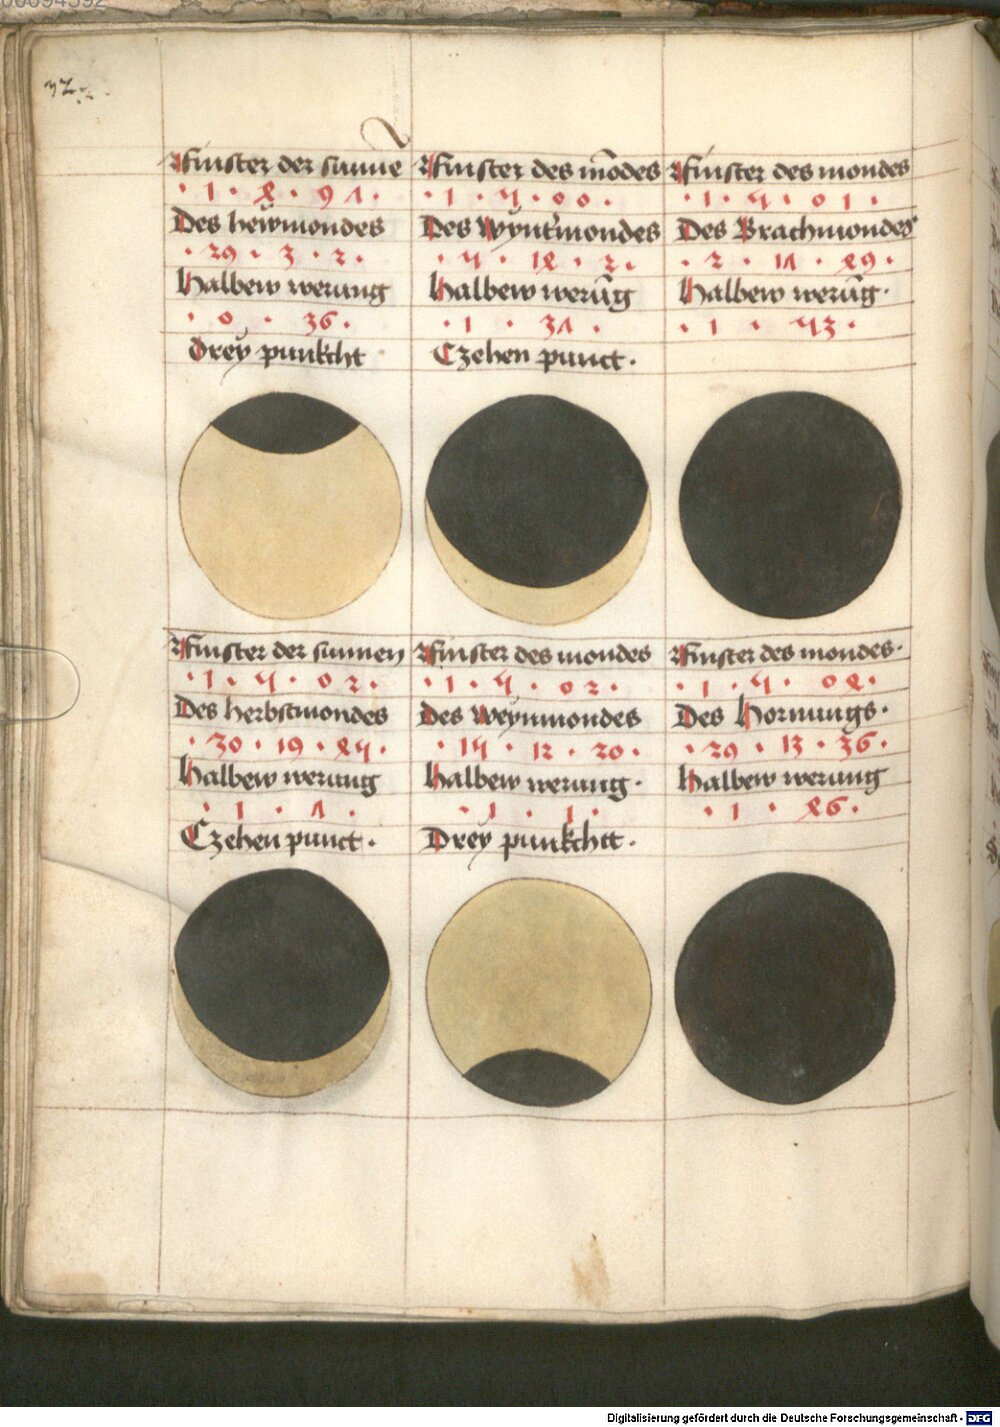 00094592
32
Finster der sunne
· 1 · 4 · 9 7 ·
Des hewmondes
· 29 · 3 · 2 ·
Halbew werung
· 0 · 36 ·
Drey punkcht
Finster des mōdes
· 1 · 5 · 0 0 ·
Des Wynt'mondes
· 5 · 14 · 2 ·
Halbew werūg
· 1 · 37 ·
Czehen punct ·
Finster des mondes
· 1 · 5 · 0 1 ·
Des Brachmondes
· 2 · 17 · 49 ·
Halbew werūg ·
· 1 · 53 ·
Finster der sunnen
· 1 · 5 · 0 2 ·
Des herbstmondes
· 30 · 19 · 45 ·
Halbew werung
· 1 · 7 ·
Czehen punct ·
Finster des mondes
· 1 · 5 · 0 2 ·
Des Weynmondes
· 15 · 12 · 20 ·
Halbew werung ·
· 1 · 1 ·
Drey punkchtt ·
Finster des mondes ·
· 1 · 5 · 0 4 ·
Des Hornungs ·
· 29 · 13 · 36 ·
Halbew werung
· 1 · 46 ·
Digitalisierung gefördert durch die Deutsche Forschungsgemeinschaft - DFG